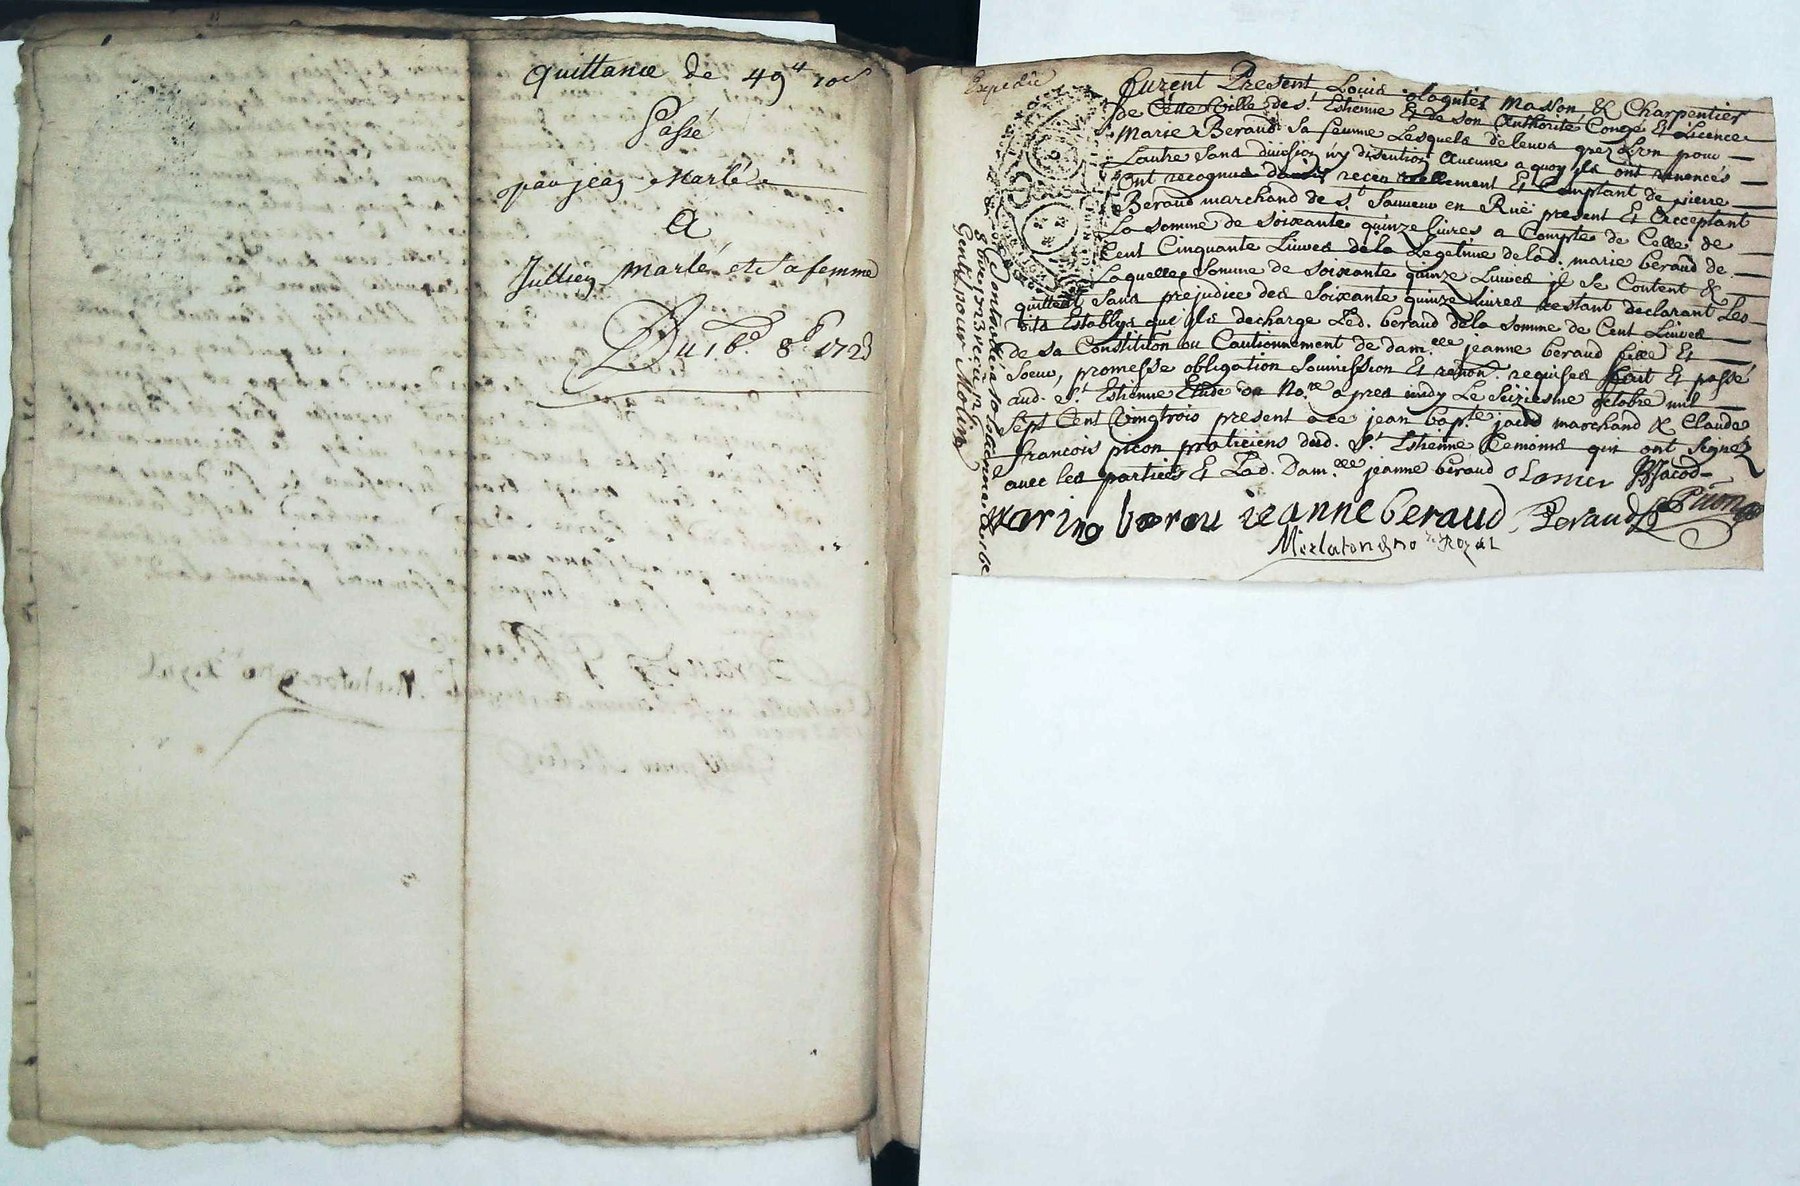 quittance de 49# 10s
Passé
par jean Marlé
A
Jullien Marlé et sa femme
Du 16e 8b 1723
Expedié
furent Present Louis Masson & Charpentier
de Cette Ville de St Estienne Et de son Authorité Congé Et Licence
Marie Beraud sa femme Lesquels de leurs grez L'un pour
Lautre sans division ny discution Aucune a quoy ils ont renoncés
Ont recognus avoir receu reellement Et Comptant de pierre
Beraud marchand de St Sauveur en Ruë present Et Acceptant
La somme de soixante quinze livres a Compte de Celle de
Cent Cinquante Livres de la Legetime de lad. marie beraud de
Laquelle somme de soixante quinze Livres il se Content &
quittent sans prejudice des soixante quinze livres restant declarant Les
dits Establys qu'ils decharge Led. beraud de la somme de Cent Livres
de sa Constitution ou Cautionnement de damlle jeanne beraud fille Et
soeur, promesse obligation soumission Et renon. requises fait Et passé
aud. St Estienne Etude du No.re apres midy Le seiziesme octobre mil
sept Cent Vingtrois present a ce jean bap.te jacod marchand & Claude
francois picon praticiens dud. St Estienne temoins qui ont signez
avec les parties Et Lad. Damlle jeanne beraud
JBJacod
marino berou jeanne beraud Beraud Picon
Merlaton no.re Royal
Controllé a St Estienne
receu
Gentil pour Molin